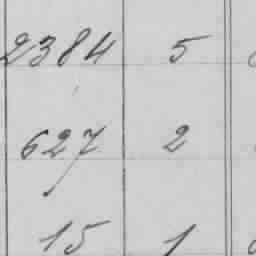 2384 5
627 2
15 1